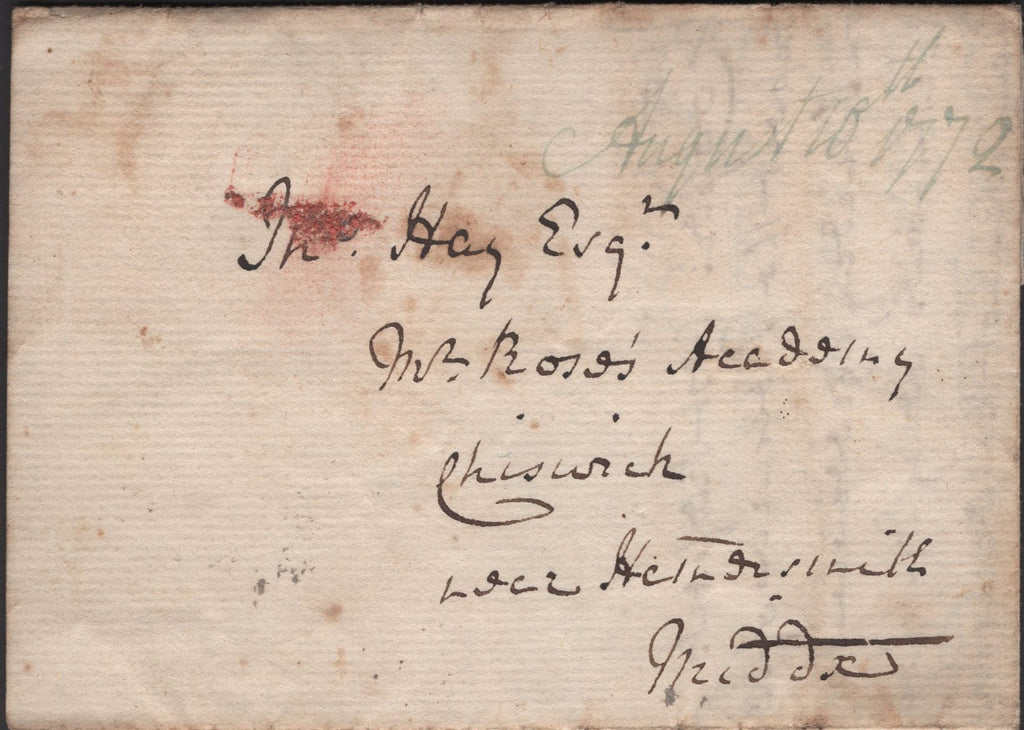 August 18th 1772
Thos. Hay Esqr.
Mr. Rose's Academy
Chiswick
near Ham̅ersmith
Middx